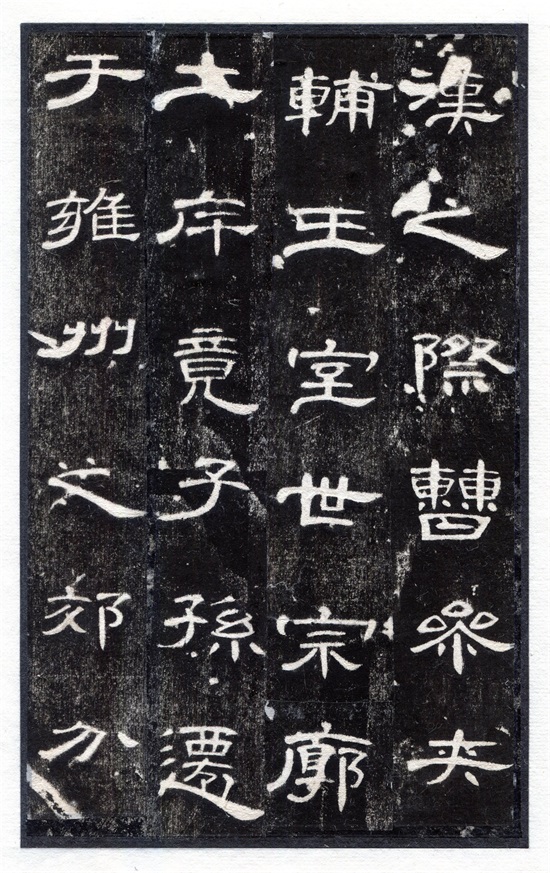 漢之際曹參夾
輔王室世宗廓
土斥竟子孫遷
于雍州之郊分